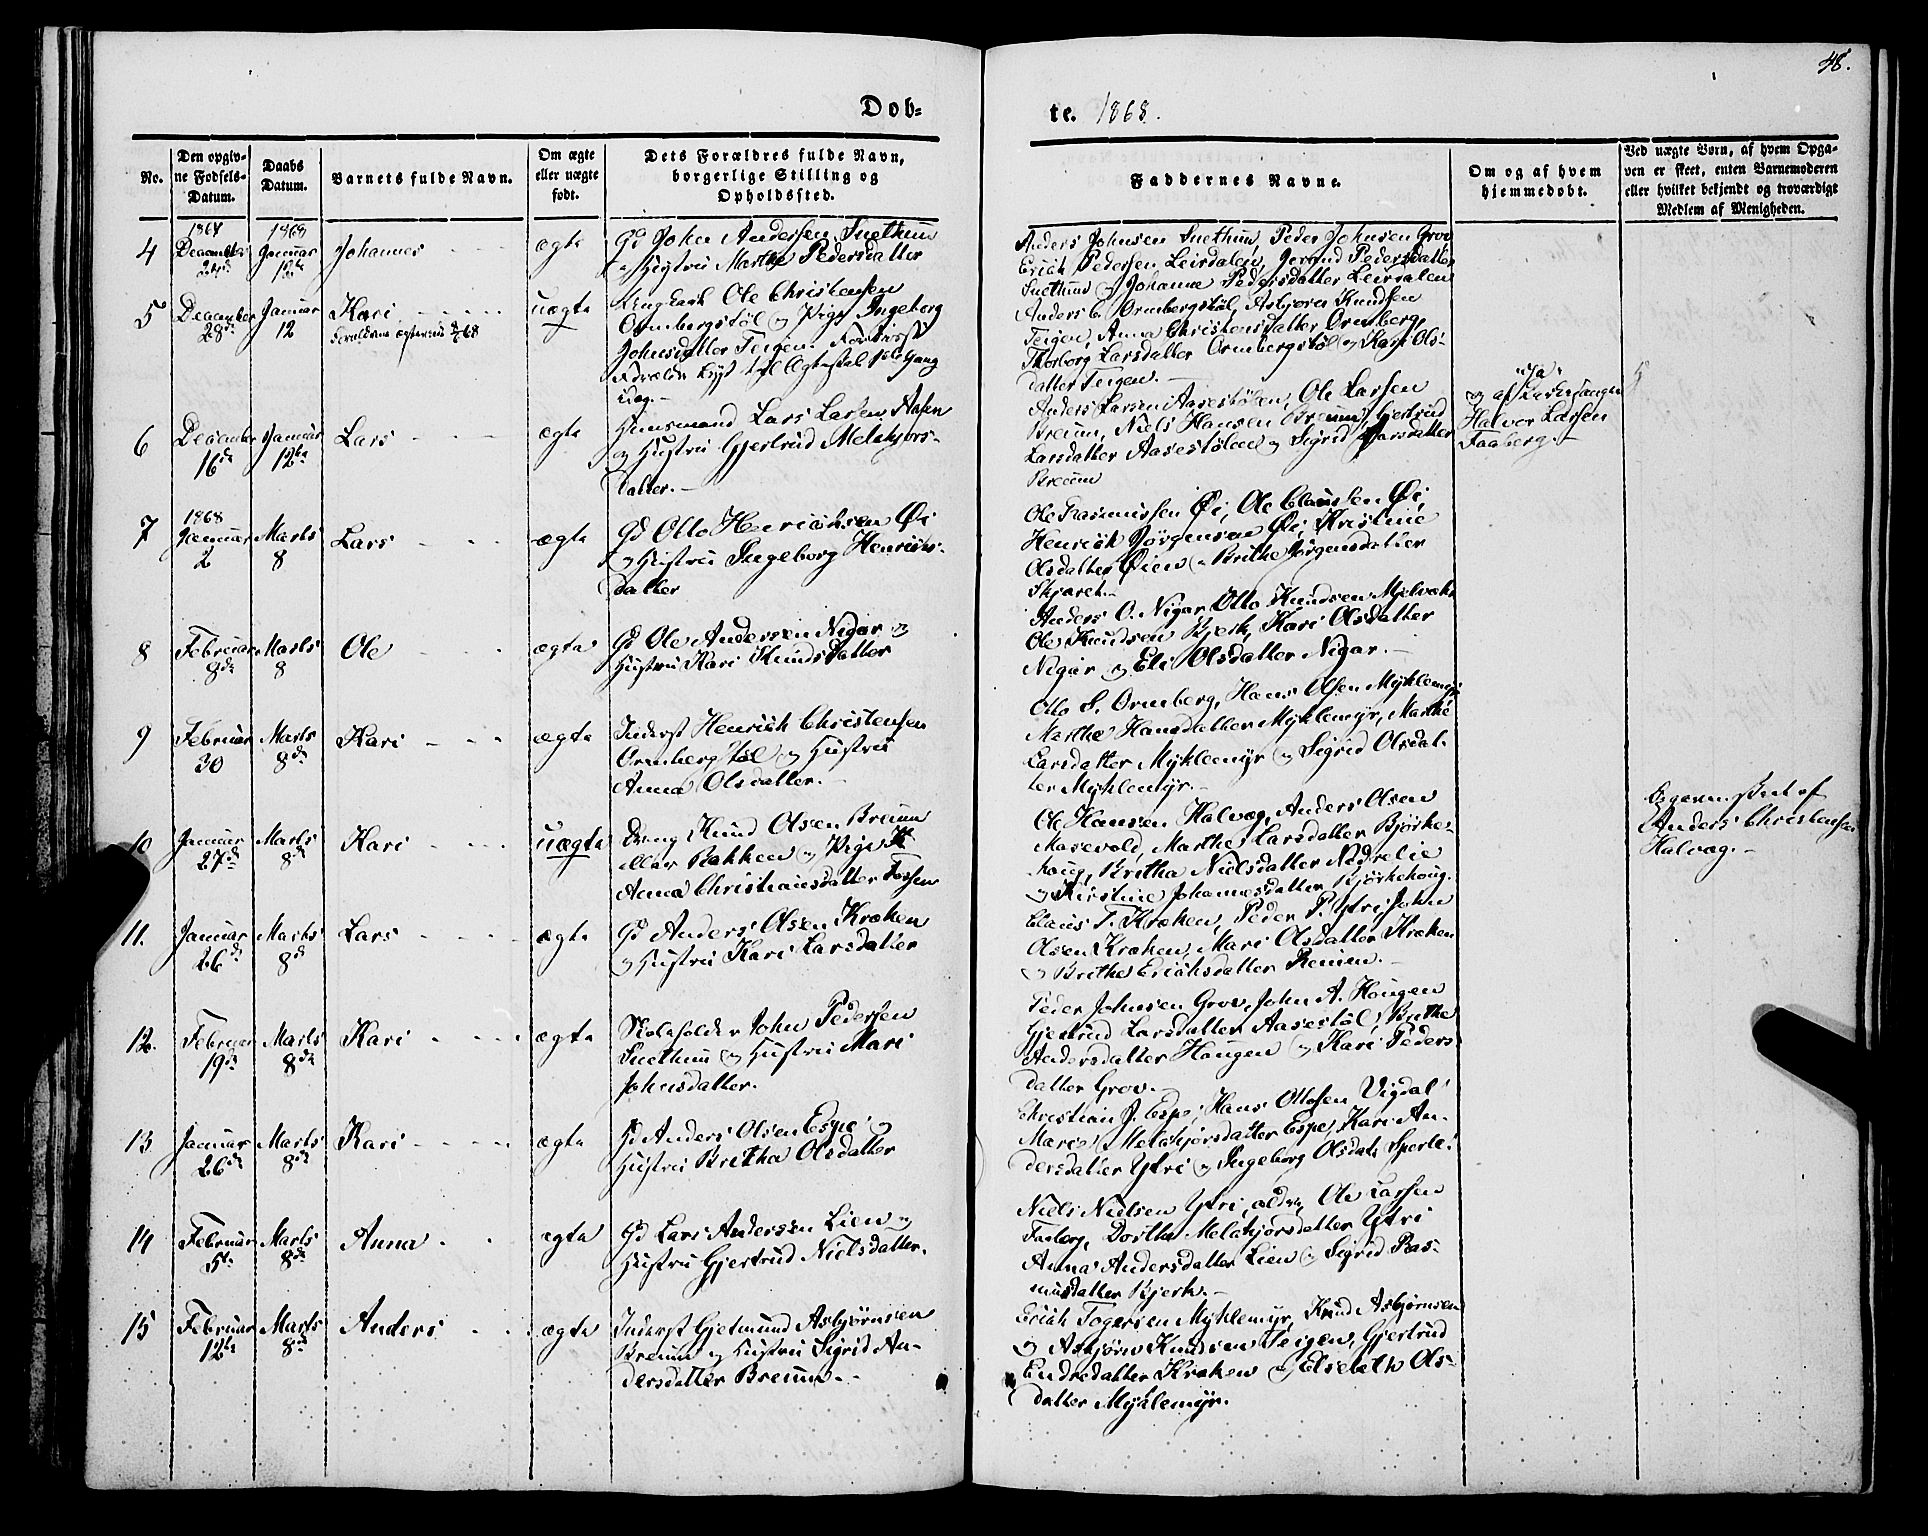 48.
Dob=
te. 1868.
No.
Den opgiv-
ne Fødsels-
Datum.
Daabs
Datum.
Barnets fulde Navn.
Om ægte
eller uægte
født.
Dets Forældres fulde Navn,
borgerlige Stilling og
Opholdssted.
Faddernes Navne.
Om og af hvem
hjemmedøbt.
Ved uægte Børn, af hvem Opga-
ven er skeet, enten Barnemoderen
eller hvilket bekjendt og troværdigt
Medlem af Menigheden.
4
1867
December
24de
1868
Januar
12te
Johannes
ægte
Gd John Andersen Snethun
og Hustru Marthe Pedersdatter
Anders Johnsen Snethun, Peder Johnsen Grov
Erich Pedersen Leirdalen, Pedersdatter
Snethun og Johanne Pedersdatter Leirdalen
5
December
28de
Januar
12
Kari
uægte
Ungkarl Ole Christensen
Ormbergstøl og Pige Ingeborg
Johnsdatter Teigen. Forlovet
Anders C. Ormbergstøl, Asbjørn Knudsen
Teigen, Anna Christensdatter Ormberg,
Thorborg Larsdatter Ormbergstøl og Kari Ols-
datter Teigen.
6
December
16de
Januar
12te
Lars
ægte
Huusmand Lars Larsen Aasen
og Hustru Gjertrud Melchjors-
datter.
Anders Larsen Aasestølen, Ole Larsen
Breum, Niels Hansen Breum, Gjertrud
Larsdatter Aasestølen og Sigrid Larsdatter
Breum
"Ja"
og af
Halvor Larsen
Faaberg.
7
1868
Januar
2
Marts
8
Lars
ægte
Gd Otto Henrichsen Øi
og Hustru Ingeborg Henrichs-
datter
Ole Rasmussen Øi, Ole Claussen Øi,
Henrich Jørgensen Øi, Kristine
Olsdatter Øien og Brithe Jørgensdatter
Skjæret.
8
Februar
8de
Marts
8
Ole
ægte
Gd Ole Andersen Nigar og
Hustru Kari Knudsdatter
Anders O. Nigar, Otto Knudsen
Ole Knudsen Bjerk, Kari Olsdatter
Nigar og Eli Olsdatter Nigar.
9
Februar
30
Marts
8de
Kari
ægte
Inderst Henrich Christensen
Ormbergstøl og Hustru
Anna Olsdatter.
Otto S. Ormberg, Hans Olsen Myklemyr
Marthe Hansdatter Myklemyr, Marthe
Larsdatter Myklemyr og Sigrid Olsdat-
ter Myklemyr.
10
Januar
27de
Marts
8de
Kari
uægte
Dreng Knud Olsen Breum
eller Bakken og Pige
Anna Christiansdatter Fossen
Ole Hansen Halvæg, Anders Olsen
Mosevold, Marthe Larsdatter Bjørke-
houg, Britha Nielsdatter Nedrelie
og Kirstine Johannesdatter Bjørkehoug.
af
Anders Christensen
Halvæg.
11.
Januar
26de
Marts
8de
Lars
ægte
Gd Anders Olsen Kroken
og Hustru Kari Larsdatter
Claus T. Kroken, Peder P. Ytri, John
Olsen Kroken, Mari Olsdatter Kroken
og Brithe Erichsdatter Breum.
12.
Februar
19de
Marts
8de
Kari
ægte
Skoleholder John Pedersen
Snethun og Hustru Mari
Johnsdatter.
Peder Johnsen Grov, John A. Hougen
Gjertrud Larsdatter Aasestøl, Brithe
Andersdatter Hougen og Kari Peders-
datter Grov.
13
Januar
26de
Marts
8de
Kari
ægte
Gd Anders Olsen Espe og
Hustru Britha Olsdatter
Christian J. Espe, Hans Ottosen Vigdal
Mari Melchjorsdatter Espe, Kari An-
dersdatter Ytri og Ingeborg Olsdatr Sperle.
14
Februar
5te
Marts
8de
Anna
ægte
Gd Lars Andersen Lien og
Hustru Gjertrud Nielsdatter.
Niels Nielsen Ytri, ældre, Ole Larsen
Faaberg, Dorthe Melchjorsdatter Ytri
Anna Andersdatter Lien og Sigrid Ras-
musdatter Bjerk.
15
Februar
12te
Marts
8de
Anders
ægte
Inderst Gjetmund Asbjørnsen
Breum og Hustru Sigrid An-
dersdatter Breum.
Erich Togersen Myklemyr, Knud Asbjørnsen
og Asbjørn Knudsen Teigen, Gjertrud
Endredatter Kroken og Elsebeth Ols-
datter Myklemyr.